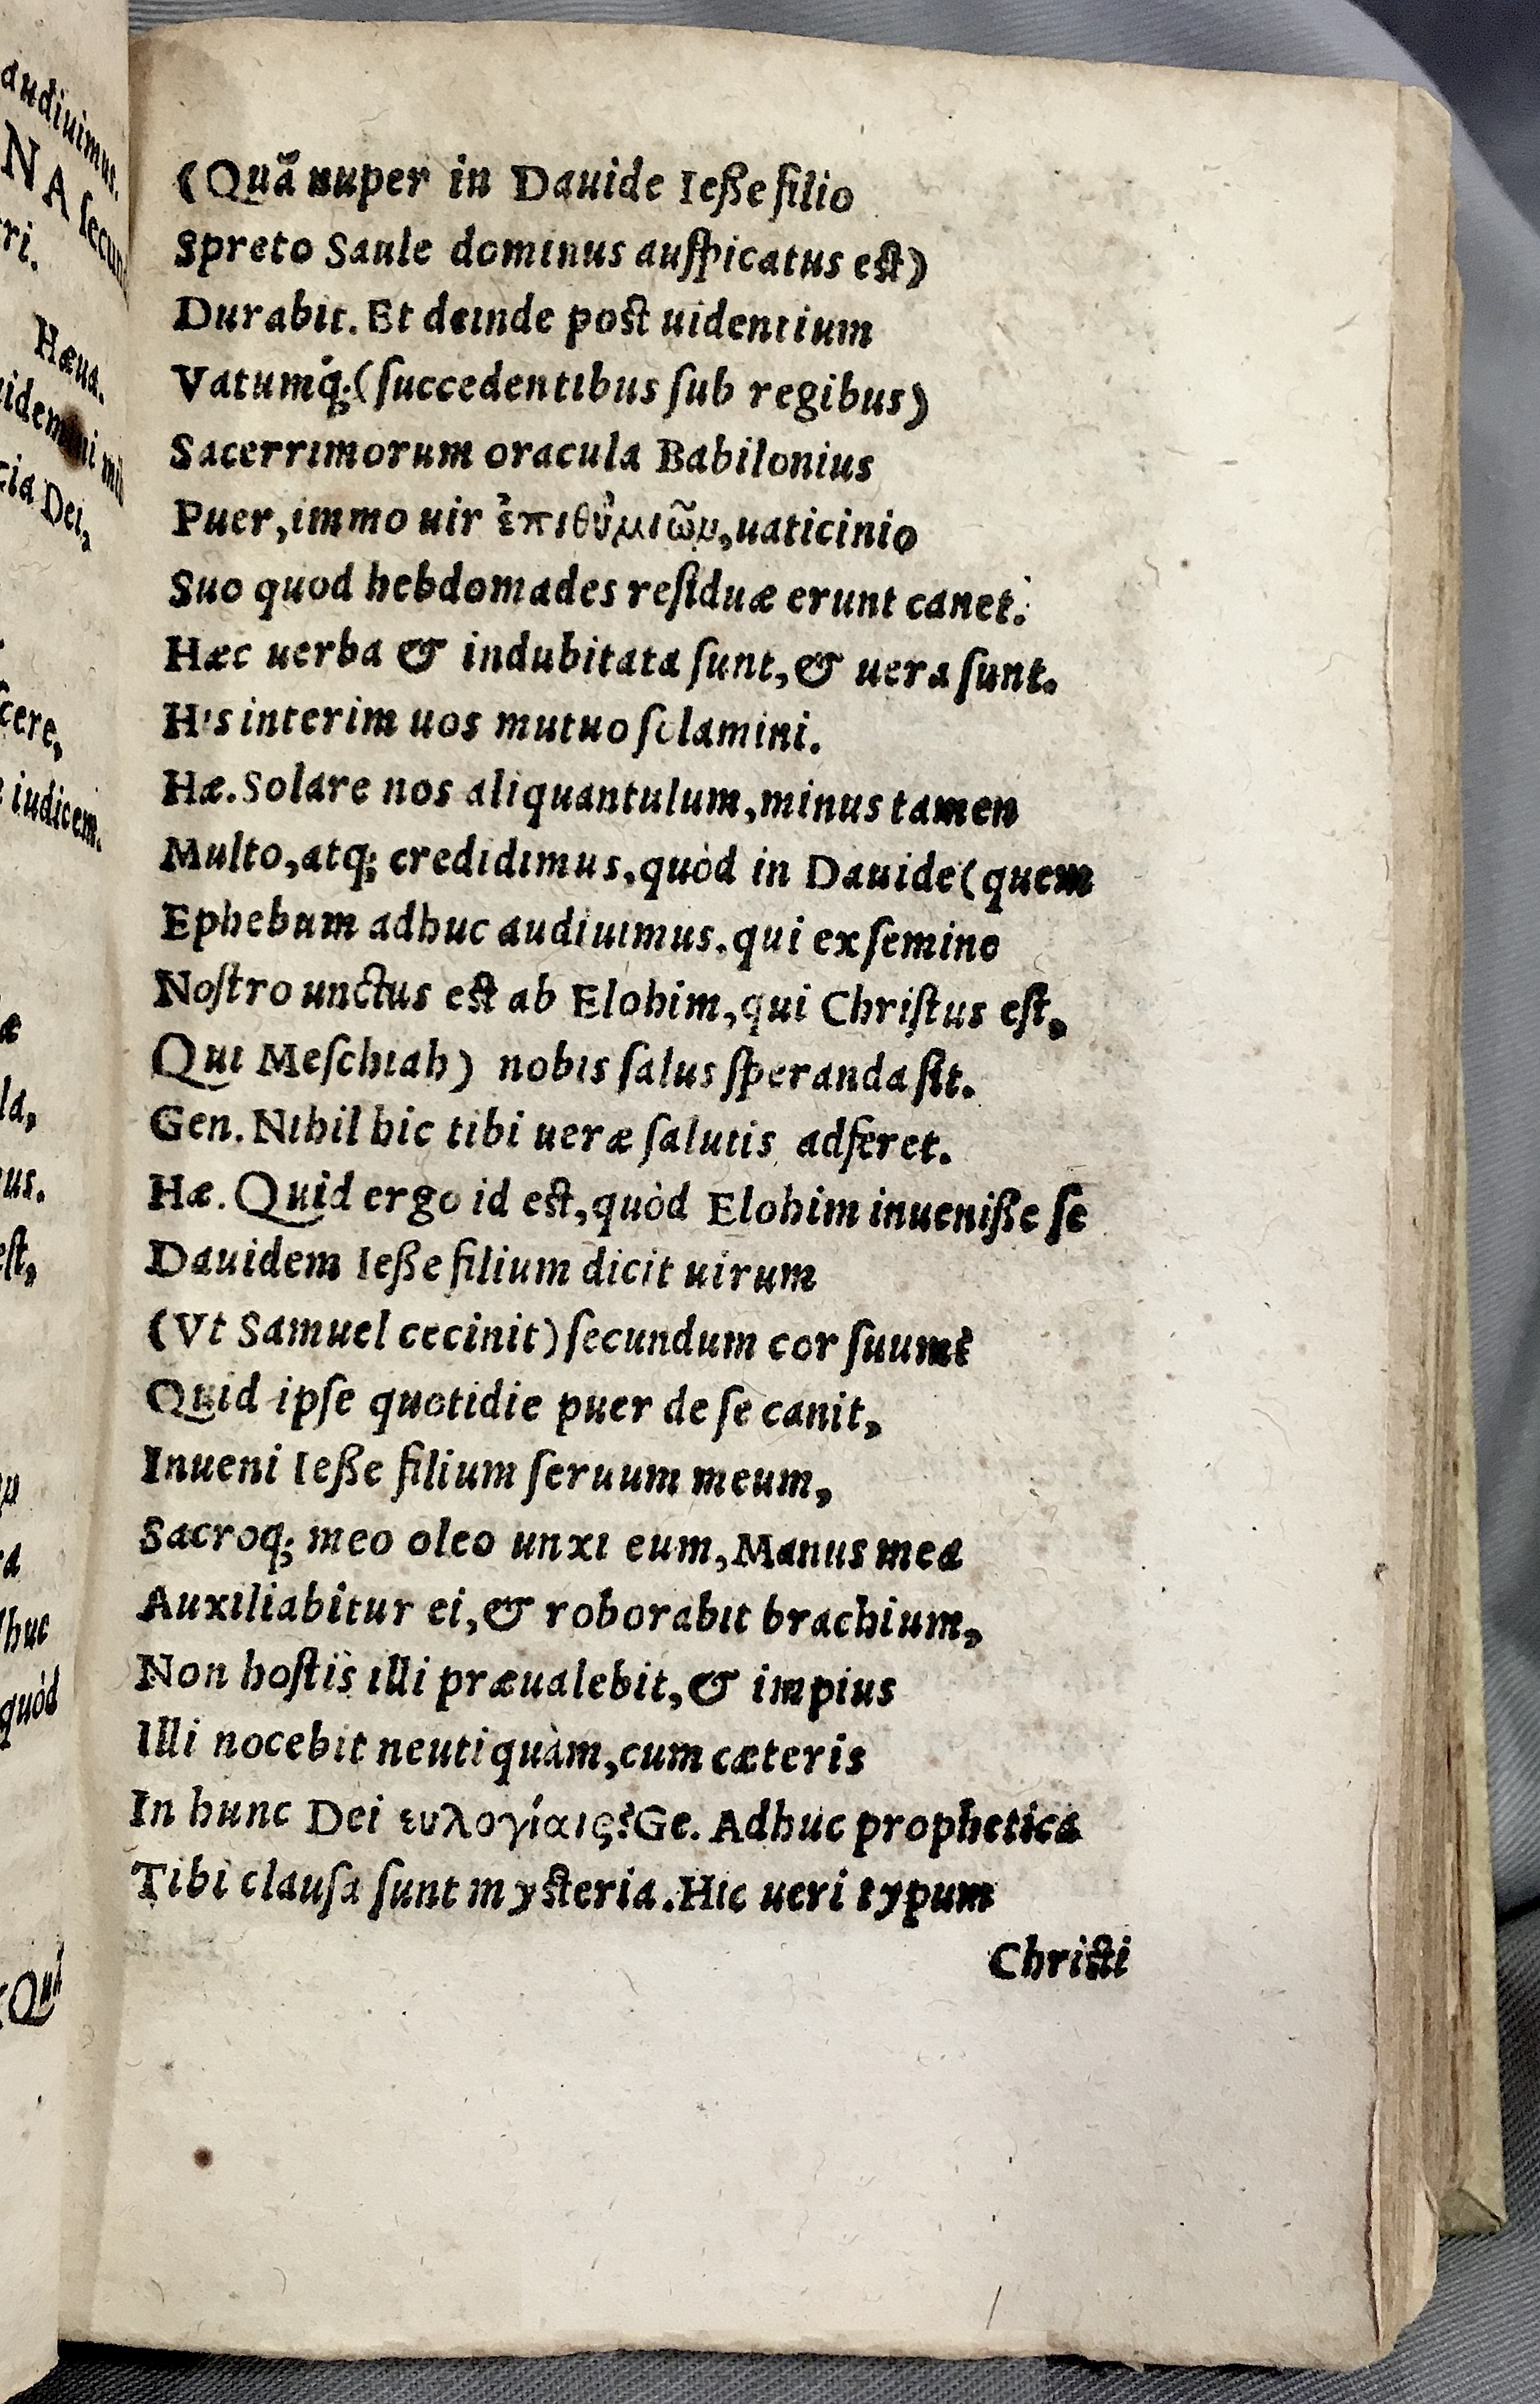 audiuimus.
NA secun
ri.
Hæua.
cia Dei,
cere,
iudicem.
æ
la,
us.
est,
huc
quòd
(Quã
(Quã nuper in Dauide Ieſſe filio
Spreto Saule dominus auſpicatus eſt)
Durabit. Et deinde poſt uidentium
Vatumq́;(ſuccedentibus ſub regibus)
Sacerrimorum oracula Babilonius
Puer, immo uir ἐπιθὐμιῶμ, uaticinio
Suo quod hebdomades reſiduæ erunt canet:
Hæc uerba & indubitata ſunt, & uera ſunt.
His interim uos mutuo ſolamini.
Hæ. Solare nos aliquantulum, minus tamen
Multo, atq; credidimus, quòd in Dauide (quem
Ephebum adhuc audiuimus, qui ex ſemine
Noſtro unctus eſt ab Elohim, qui Chriſtus eſt,
Qui Meſchiah) nobis ſalus ſperanda ſit.
Gen. Nihil hic tibi ueræ ſalutis adferet.
Hæ. Quid ergo id eſt, quòd Elohim inueniſſe ſe
Dauidem Ieſſe filium dicit uirum
(Vt Samuel cecinit) ſecundum cor ſuum?
Quid ipſe quotidie puer de ſe canit,
Inueni Ieſſe filium ſeruum meum,
Sacroq; meo oleo unxi eum, Manus mea
Auxiliabitur ei, & roborabit brachium,
Non hoſtis illi præualebit, & impius
Illi nocebit neutiquàm, cum cæteris
In hunc Dei ευλογίαις? Ge. Adhuc prophetica
Tibi clauſa ſunt myſteria. Hic ueri typum
Chriſti